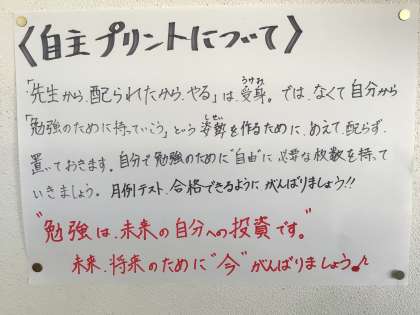 〈自主プリントについて〉
「先生から、配られたから、やる」は、受身。では、なくて自分から
「勉強のために持っていこう」という姿勢を作るために、あえて、配らず、
置いておきます。自分で勉強のために"自由"に必要な枚数を持って
いきましょう。月例テスト、合格できるように、がんばりましょう!!
"勉強は、未来の自分への投資です。"
未来、将来のために"今"がんばりましょう♪